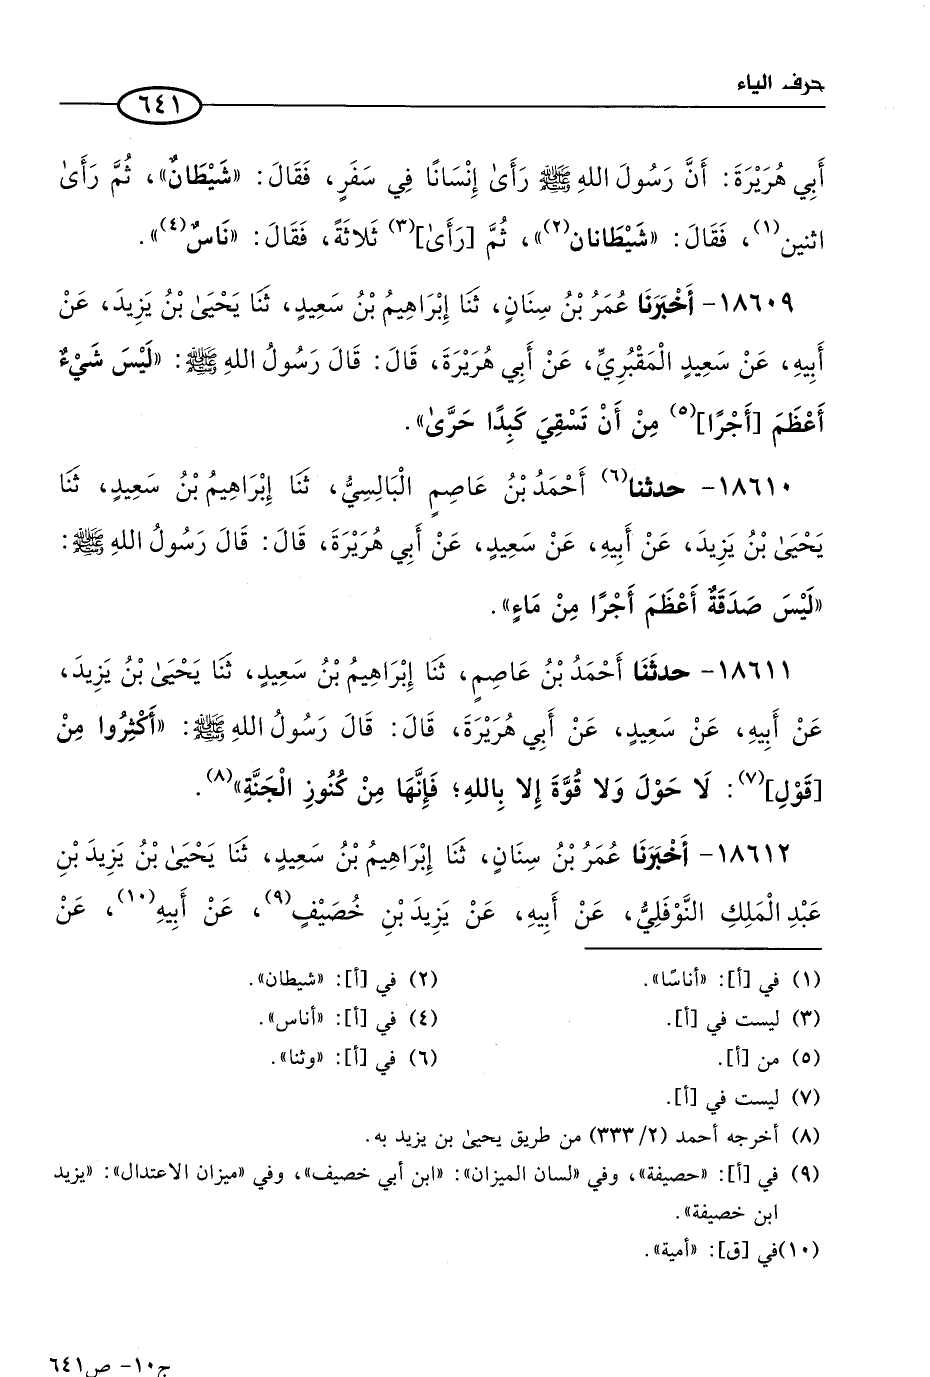 حرف الياء
٦٤١
أَبِي هُرَيْرَةَ: أَنَّ رَسُولَ اللهِ ﷺ رَأَىٰ إِنْسَانًا فِي سَفَرٍ، فَقَالَ: «شَيْطَانٌ»، ثُمَّ رَأَىٰ
اثنين(١)، فَقَالَ: «شَيْطَانان(٢)»، ثُمَّ [رَأَىٰ](٣) ثَلاثَةً، فَقَالَ: «نَاسٌ(٤)».
١٨٦٠٩- أَخْبَرَنَا عُمَرُ بْنُ سِنَانٍ، ثَنَا إِبْرَاهِيمُ بْنُ سَعِيدٍ، ثَنَا يَحْيَىٰ بْنُ يَزِيدَ، عَنْ
أَبِيهِ، عَنْ سَعِيدٍ الْمَقْبُرِيِّ، عَنْ أَبِي هُرَيْرَةَ، قَالَ: قَالَ رَسُولُ اللهِ ﷺ: «لَيْسَ شَيْءٌ
أَعْظَمَ [أَجْرًا](٥) مِنْ أَنْ تَسْقِيَ كَبِدًا حَرَّىٰ».
١٨٦١٠- حدثنا(٦) أَحْمَدُ بْنُ عَاصِمٍ الْبَالِسِيُّ، ثَنَا إِبْرَاهِيمُ بْنُ سَعِيدٍ، ثَنَا
يَحْيَىٰ بْنُ يَزِيدَ، عَنْ أَبِيهِ، عَنْ سَعِيدٍ، عَنْ أَبِي هُرَيْرَةَ، قَالَ: قَالَ رَسُولُ اللهِ ﷺ:
«لَيْسَ صَدَقَةٌ أَعْظَمَ أَجْرًا مِنْ مَاءٍ».
١٨٦١١- حدثَنَا أَحْمَدُ بْنُ عَاصِمٍ، ثَنَا إِبْرَاهِيمُ بْنُ سَعِيدٍ، ثَنَا يَحْيَىٰ بْنُ يَزِيدَ،
عَنْ أَبِيهِ، عَنْ سَعِيدٍ، عَنْ أَبِي هُرَيْرَةَ، قَالَ: قَالَ رَسُولُ اللهِ ﷺ: «أَكْثِرُوا مِنْ
[قَوْلِ](٧): لَا حَوْلَ وَلا قُوَّةَ إِلا بِاللهِ؛ فَإِنَّهَا مِنْ كُنُوزِ الْجَنَّةِ»(٨).
١٨٦١٢- أَخْبَرَنَا عُمَرُ بْنُ سِنَانٍ، ثَنَا إِبْرَاهِيمُ بْنُ سَعِيدٍ، ثَنَا يَحْيَىٰ بْنُ يَزِيدَ بْنِ
عَبْدِ الْمَلِكِ النَّوْفَلِيُّ، عَنْ أَبِيهِ، عَنْ يَزِيدَ بْنِ خُصَيْفٍ(٩)، عَنْ أَبِيهِ(١٠)، عَنْ
(١) في [أ]: «أناسًا». (٢) في [أ]: «شيطان».
(٣) ليست في [أ]. (٤) في [أ]: «أناس».
(٥) من [أ]. (٦) في [أ]: «وثنا».
(٧) ليست في [أ].
(٨) أخرجه أحمد (٢/ ٣٣٣) من طريق يحيىٰ بن يزيد به.
(٩) في [أ]: «حصيفة»، وفي «لسان الميزان»: «ابن أبي خصيف»، وفي «ميزان الاعتدال»: «يزيد
ابن خصيفة».
(١٠)في [ق]: «أمية».
ج١٠- ص٦٤١